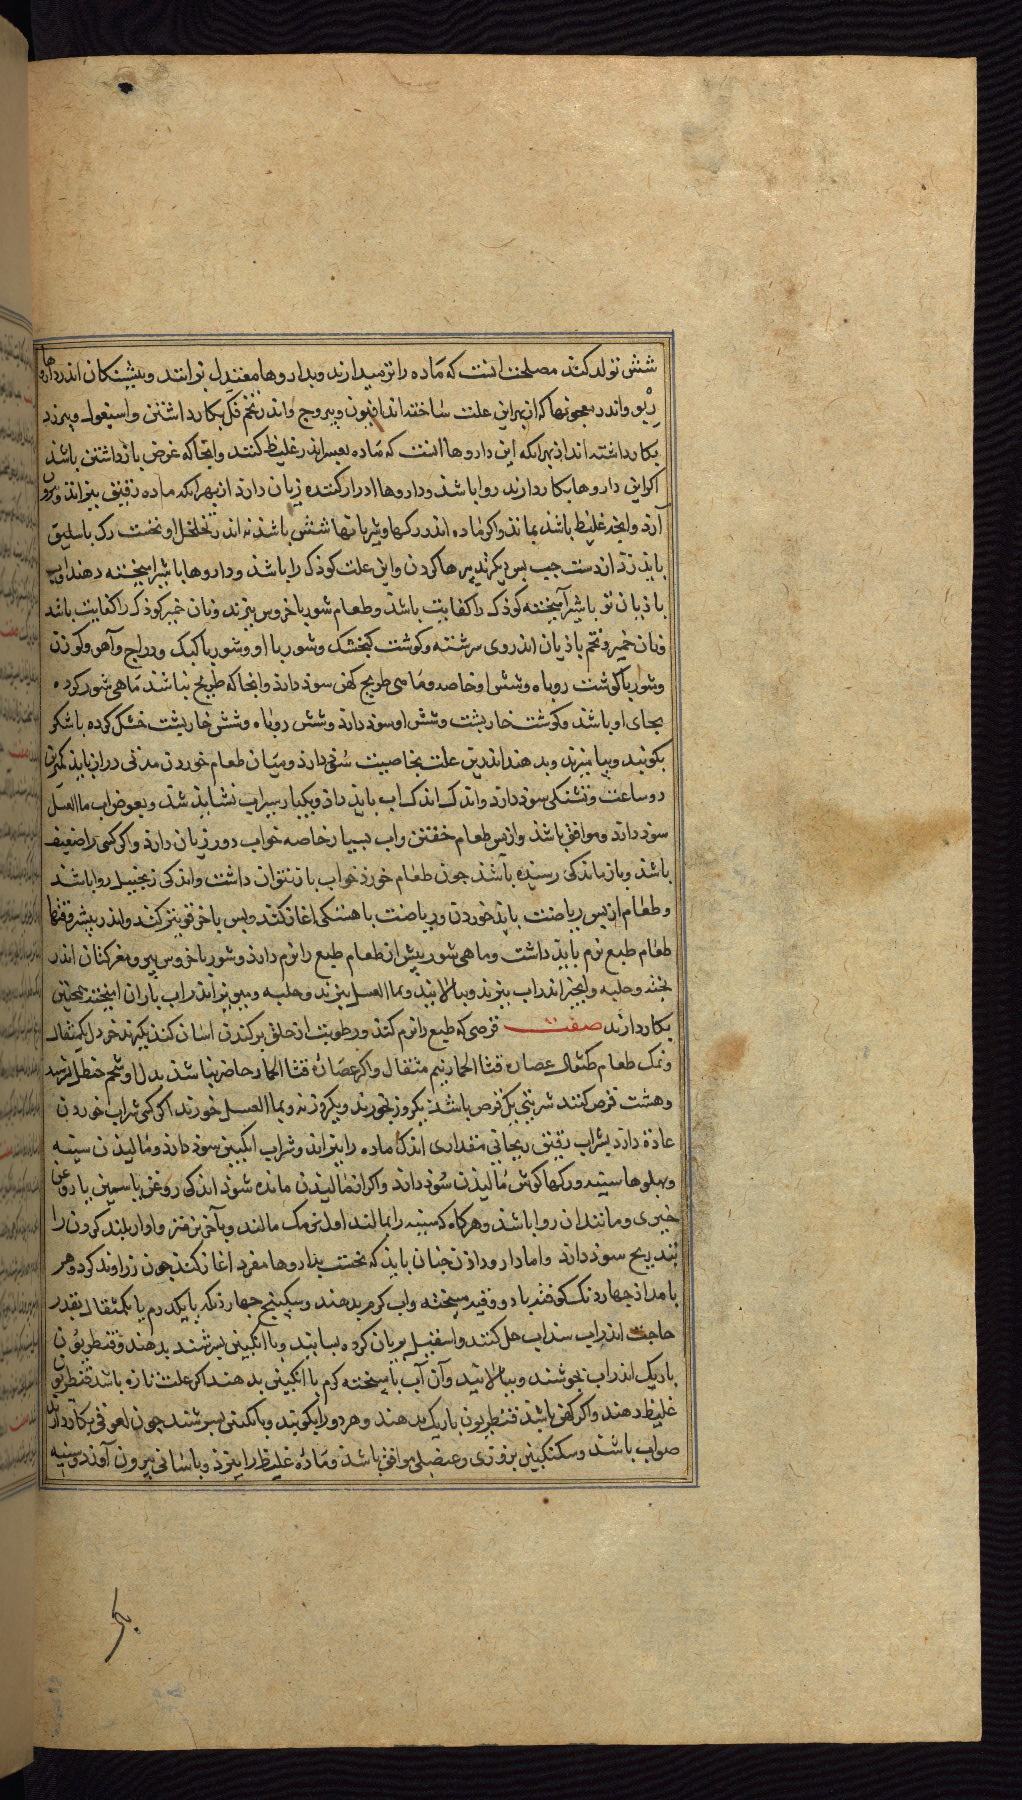 شش تولد کند مصلحت انست که ماده را نرم میدارند وبداروها معتدل برانند وپیشنکان اندر داروها
ربو واندر معجونها که از بهر این علت ساخته اند افیون ویبروج واندر تخم فکل بکار داشتن واسپغول وبهرزد
بکار داشته اند از بهر انکه این داروها انست که ماده بفسراند غلیظ کنند وانجا که غرض بازداشتن باشد
اکر این داروها بکار دارند روا باشد وداروها ادرار کننده زیان دارد از بهر انکه ماده رقیق براند وبیرون
آرد وانچه غلیظ باشد بماند واکر ماده اندر رکها وشریانها شش باشد نه اندر تخلخل او نخست رک باسلیق
باید زد از دست جب بس دیکر تدبیرها کردن واین علت کوذک را باشد وداروها با شیر امیخته دهند واب
باذیان تر با شیر آمیخته کوذک را کفایت باشد وطعام شوربا خروس پیرند ونان خمیر کوذک را کفایت باشد
ونان خمیر وتخم باذیان اندر وی سرشته وکوشت کنجشک وشوربا او وشوربا کبک ودراج وآهو وکوزن
وشوربا کوشت روباه وشش او خاصه وماهی طریح کهن سوذ دارد وانجا که طریح نباشد ماهی شور کرده
بجای او باشد وکوشت خاربشت وشش او سوذ دارد وشش روباه وشش خاربشت خشک کرده با شکر
بکوبند وبیامیزند وبدهند اندرین علت بخاصیت شفی دارد ومیان طعام خوردن مدتی دراز باید کمترین
دو ساعت وتشنکی سوذ دارد واندک اندک اب باید داد ویکبار سیراب نشاید شد وبعوض اب ما العسل
سوذ دارد وموافق باشد وازپس طعام خفتن واب بسیار خاصه خواب دور زیان دارد واکر کسی را ضعیف
باشد وباز ماندکی رسیده باشد جون طعام خورد خواب باز نتوان داشت واندکی زنجبیل روا باشد
وطعام ازپس ریاضت باید خوردن وریاضت باهستکی اغاز کند وپس باخر قویتر کند واندر بیشتر وقتها
طعام طبع نرم باید داشت وماهی شور پیش از طعام طبع را نرم دارد وشوربا خروس پیر ومغز کتان اندر
پخته وحلبه وانجیر اندر اب بپزند وبپالایند وبما العسل بپزند وحلبه ومویز اندر اب باران امیخته همجنین
بکار دارند صفت قرصی که طبع را نرم کند ورطوبت از حلق برکندن اسان کند بکیرند خردل یکمثقال
ونمک طعام مثقال عصاره قثا الحمار نیم مثقال واکر عصاره قثا الحمار حاضر نباشد بدل او شحم حنظل
وهشت قرص کنند شربتی یک قرص باشد یکروز بخورند ویکروز نه وبما العسل خورند اکر کسی شراب خوردن
عاذة دارد شراب رقیق ریحانی مقداری اندک ماده را براند وشراب انکبین سوذ دارد ومالیدن سینه
وپهلوها سینه ورکها کوش مالیذن سوذ دارد واکر از مالیذن مانده شوذ اندکی روغن یاسمین یا روغن
خیری ومانند ان روا باشد وهرکاه که سینه را بمالند اول نرمک مالند وبآخر نرمتر واواز بلند کردن را
بتدریج سوذ دارد واما دارو داذن جنان باید که نخست بداروها مفرد اغاز کنند جون زراوند کرد وهر
بامداد جهار دنک کوفته با دو وقیه پیخته واب کرم بدهند وسکبینج جهار دنک یا یکدرم یا یکمثقال بقدر
حاجت اندر اب سداب حل کنند واسقیل بریان کرده بسایند وبا انکبین بسرشند بدهند وقنطریون
باریک اندر اب بجوشند وبپالایند وآن آب با پیخته کرم با انکبین بدهند اکر علت تازه باشد قنطریون
غلیظ دهند واکر کهن باشد قنطریون باریک بدهند وهر دو را بکوبند وبا انکبین بسرشند جون لعوقی بکار دارند
صواب باشد وسکنکبین بزوری وعنصلی موافق باشد وماده غلیظ را ببرد وباسانی بیرون آورد وسینه